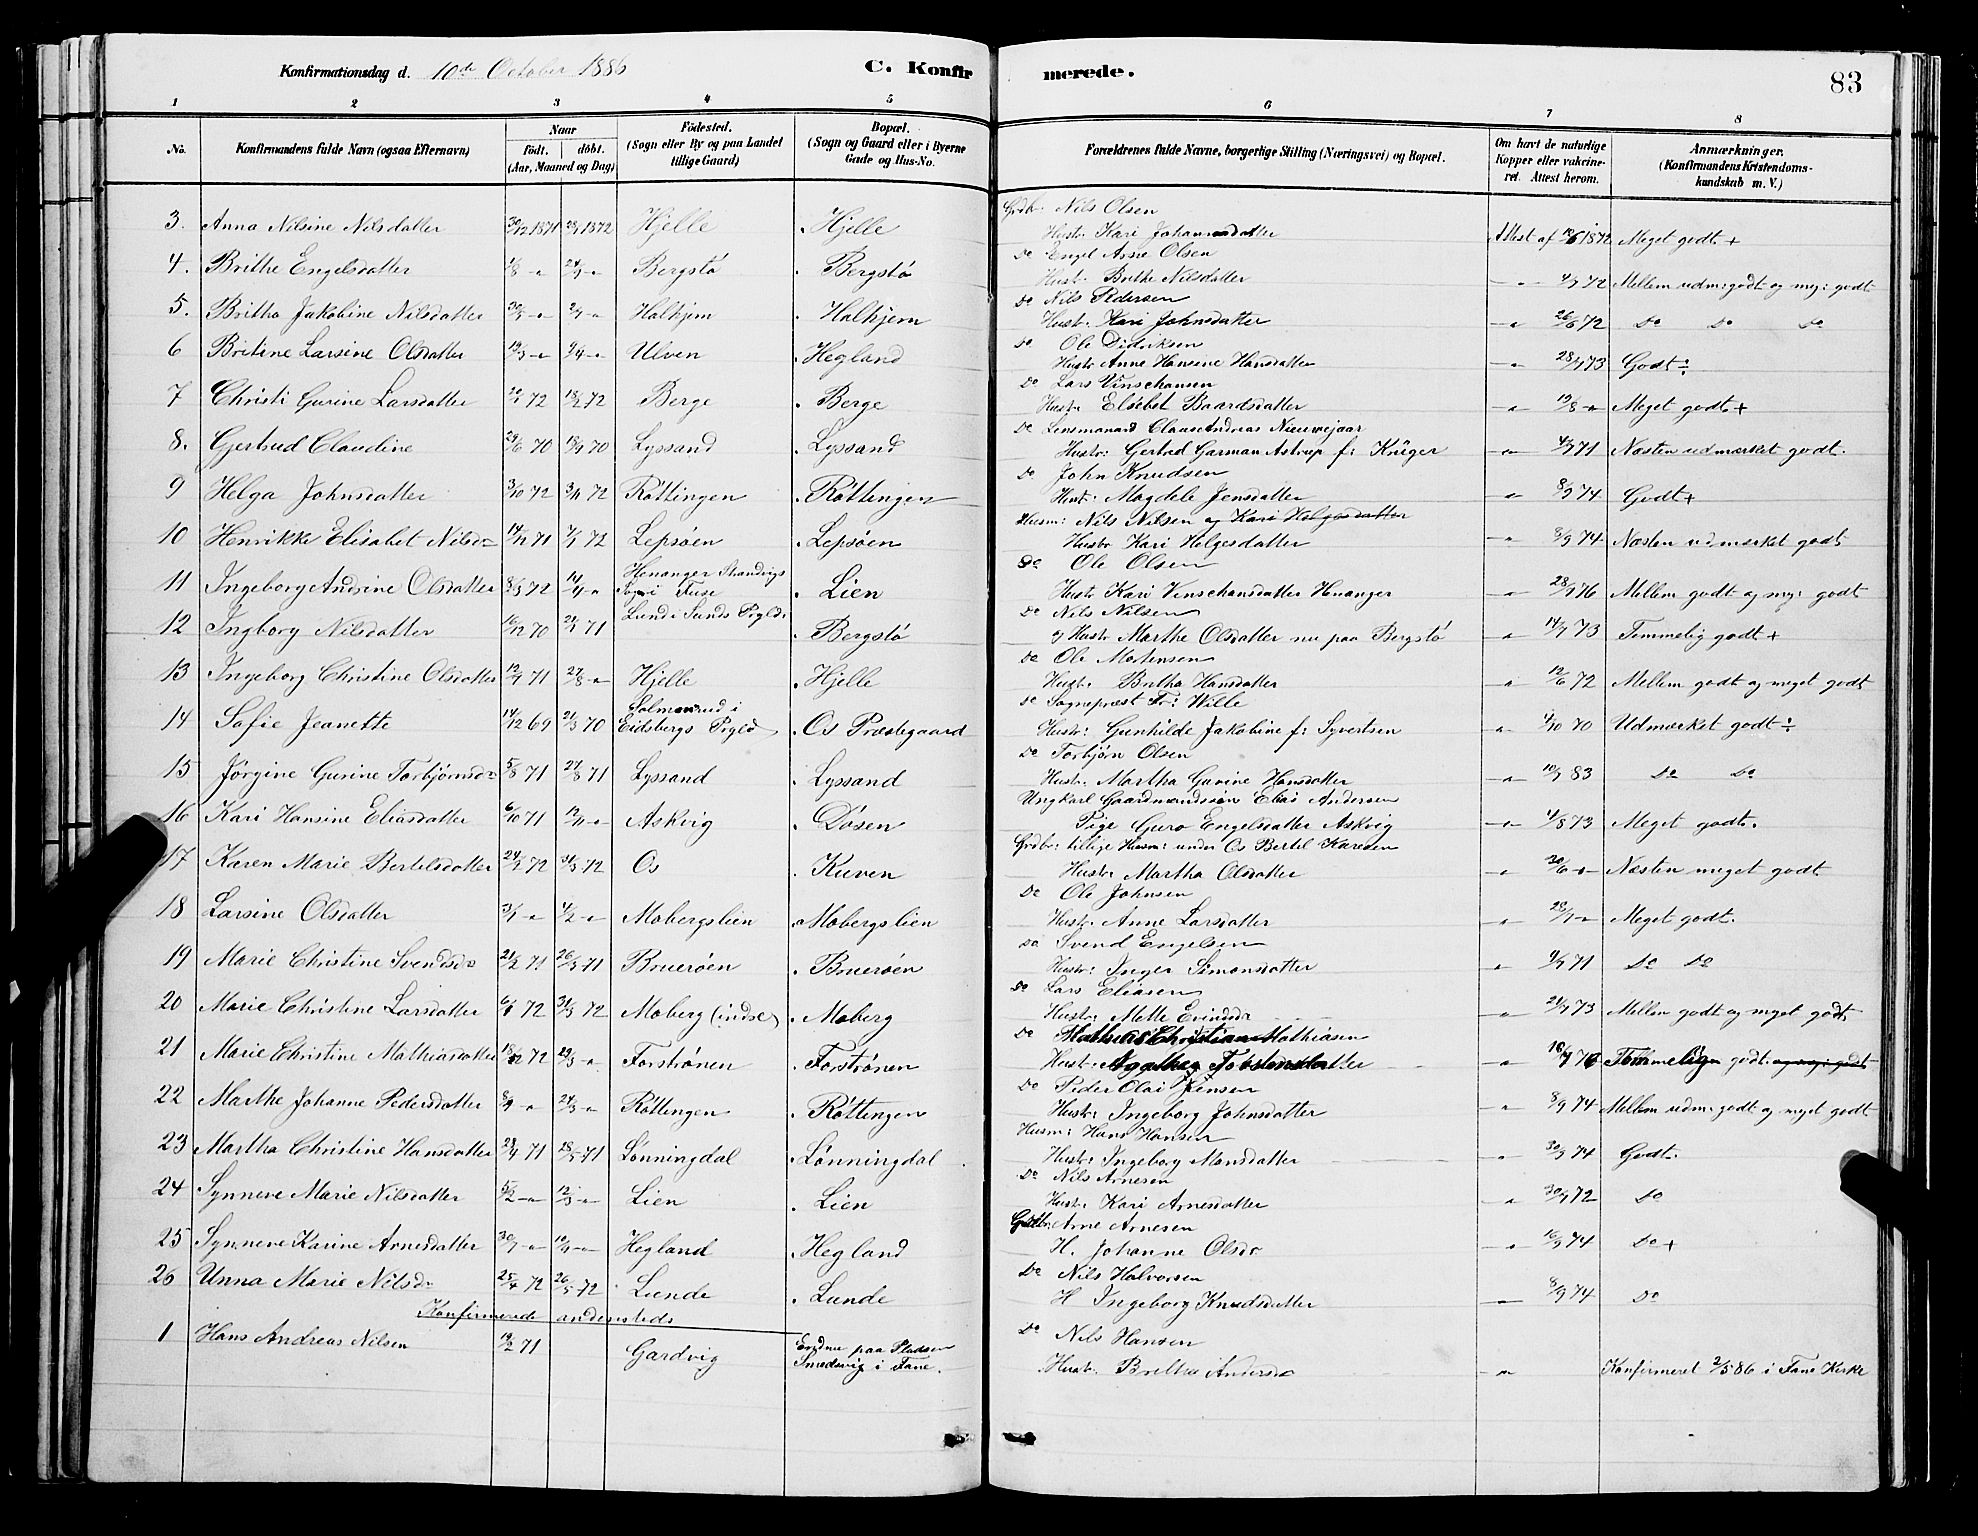 Konfirmationsdag d. 10de October 1886 C. Konfirmerede. 83
1 2 3 4 5 6 7 8
No. Konfirmandens fulde Navn (ogsaa Efternavn) Naar Födt. döbt. (Aar, Maaned og Dag) Födested. (Sogn eller By og paa Landet tillige Gaard) Bopæl. (Sogn og Gaard eller i Byerne Gade og Hus-No. Forældrenes fulde Navne, borgerlige Stilling (Næringsvei) og Bopæl. Om havt de naturlige Kopper eller vakcineret. Attest herom. Anmærkninger. (Konfirmandens Kristendomskundskab m. V.)
Grdbr. Nils Olsen
3. Anna Nilsine Nilsdatter 30/12 1871 1872 Hjelle Hjelle Hustr. Kari Johannesdatter Attest af 12/6 1872 Meget godt +
Do Engel Arne Olsen
4. Brithe Engelsdatter 1/8 -"- 24/9 -"- Bergstö Bergstö Hustr. Brithe Nilsdatter -"- 4/9 72 Mellem udm: godt og my: godt
Do Nils Pedersen
5. Britha Jakobine Nilsdatter -"- -"- Halhjem Halhjem Hustr. Kari Johnsdatter -"- 26/6 72 Do Do Do
Do Ole Didriksen
6 Britine Larsine Olsdatter 19/3 -"- 9/4 -"- Ulven Hegland Hustr Anne Hansine Hansdatter -"- 28/9 73 Godt ÷
Do Lars Vinschansen
7 Christi Gurine Larsdatter 72 18/2 72 Berge Berge Hustr. Elsebet Baardsdatter -"- 19/8 -"- Meget godt +
Do Lensmanand Claus Andreas Nieuwejaar
8. Gjertrud Claudine 29/6 70 18/9 70 Lyssand Lyssand Hustr: Gertrud Garman Astrup f: Krüger -"- 4/9 71 Næsten udmærket godt.
Do John Knudsen
9 Helga Johnsdatter 3/10 72 3/11 72 Röttingen Röttingen Hustr: Magdele Jensdatter -"- 8/9 74 Godt +
Husm: Nils Nilsen og Kari Helgesdatter
10 Henrikke Elisabet Nilsdr 14/12 71 72 Lepsöen Lepsöen Hustr Kari Helgesdatter -"- 8/9 74 Næsten udmærket godt
Do Ole Olsen
11 Ingeborg Andrine Olsdatter 8/3 72 14/4 -"- Henanger Strandvigs Sogn i Fuse Lien Hustr Kari Vinschansdatter Henanger -"- 28/9 76 Mellem godt og my: godt
Do Nils Nilsen
12 Ingborg Nilsdatter 16/12 70 71 Lund i Sunds Prgld. Bergstö og Hustr Marthe Olsdatter nu paa Bergstö " 14/9 73 Temmelig godt +
Do Ole Mortensen
13 Ingeborg Christine Olsdatter 12/7 71 27/8 -"- Hjelle Hjelle Hustr. Britha Hansdatter " 12/6 72 Mellem godt og meget godt
Do Sognepræst Fr: Wille
14 Sofie Jeanette 14/12 69 21/3 70 Salmonrud i Eidsbergs Prgld Os Præstegaard Hustr: Gunhilde Jakobine f: Syvertsen " 4/10 70 Udmærket godt ÷
Do Torbjörn Olsen
15 Jörgine Gurine Torbjörnsdr 5/8 71 27/8 71 Lyssand Lyssand Hustr. Martha Gurine Hansdatter " 10/9 83 Do Do
Ungkarl Gaardmandssön Elias Andersen
16 Kari Hansine Eliasdatter 6/10 71 12/11 -"- Askvig Dösen Pige Guro Engelsdatter Askvig -"- 4/8 73 Meget godt.
Grdbr: tillige Husm: under Os Bertel Karisen
17 Karen Marie Bertelsdatter 24/2 72 31/3 72 Os Kuven Hustr Martha Olsdatter " 30/6 -"- Næsten meget godt
Do Ole Johnsen
18 Larsine Olsdatter 3/1 -"- 4/2 -"- Mobergslien Mobergslien Hustr. Anne Larsdatter " -"- Meget godt.
Do Svend Engelsen
19 Marie Christine Svendsdr 21/2 71 26/3 71 Brueröen Brueröen Hustr: Inger Simonsdatter " 9/7 71 Do Do
Do Lars Eliasen
20 Marie Christine Larsdatter 72 31/3 72 Moberg (indre) Moberg Hustr: Mette Evindsdr " 21/9 73 Mellem godt og meget godt
Do Mathias Christian Mathiasen
21 Marie Christine Mathiasdatter 72 -"- Forströnen Forströnen Hustr. Agathe Tostensdatter " Temmelig godt. og my: godt
Do Peder Olai Jensen
22 Marthe Johanne Pedersdatter -"- 24/3 -"- Röttingen Röttingen Hustr: Ingeborg Johnsdatter " 8/9 74 Mellem udm: godt og myet godt
Husm: Hans Hansen
23 Martha Christine Hansdatter 23/4 71 28/5 71 Lönningdal Lönningdal Hustr: Ingeborg Monsdatter " 30/9 74 Godt.
Do Nils Arnesen
24 Synneve Marie Nilsdatter 5/2 -"- 12/3 -"- Lien Lien Hustr. Kari Arnesdatter " 30/9 72 Do
Grdbr: Arne Arnesen
25 Synneve Karine Arnesdatter -"- -"- Hegland Hegland H. Johanne Olsdr " 16/9 74 Do +
Do Nils Halvorsen
26 Unna Marie Nilsdr 25/4 72 26/5 72 Lunde Lunde H Ingeborg Knudsdatter — 8/9 74 Do
Konfirmerede andensteds
Do Nils Hansen
1 Hans Andreas Nilsen 19/2 71 Gardvig Endnu paa Pladsen Smedsvig i Fane. Hustr. Brithe Andersdr -"- Konfirmeret 2/5 86 i Fane Kirke